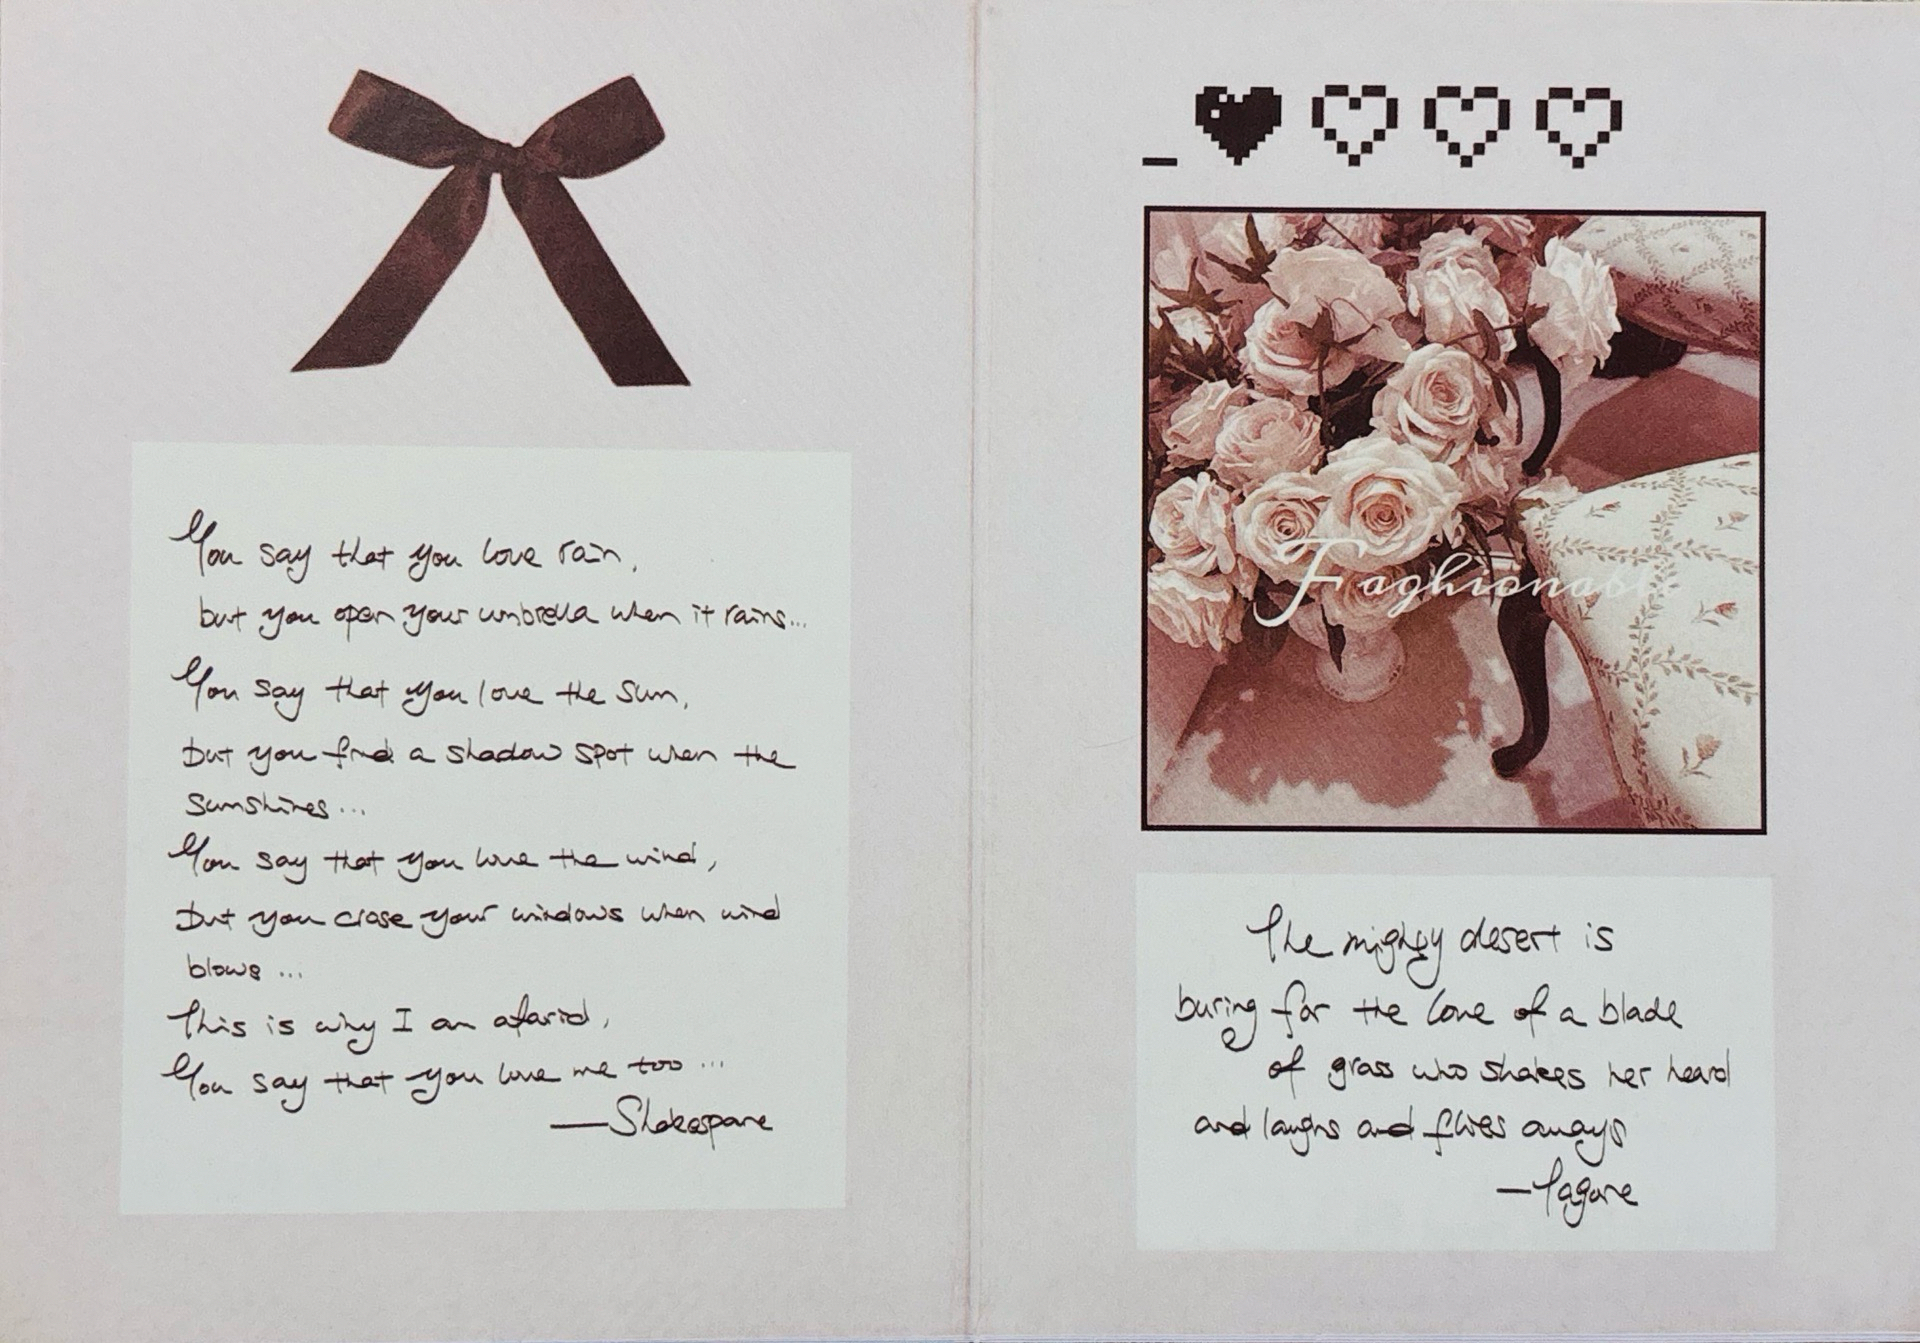 You say that you love rain,
but you open your umbrella when it rains...
You say that you love the sun,
but you find a shadow spot when the
sunshines...
You say that you love the wind,
but you close your windows when wind
blows...
This is why I am afarid,
You say that you love me too...
—Shakespare
Faghionast
The mighty desert is
buring for the love of a blade
of grass who shakes her heard
and laughs and flies aways
—Tagore